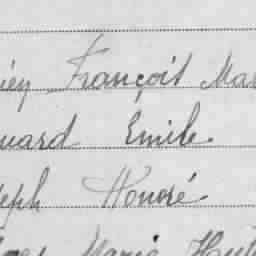 François Mar
uard Emile
seph Honoré
Marie